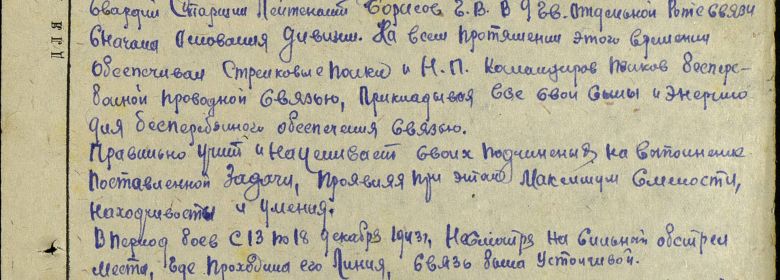 Гвардии Старший Лейтенант Борисов Г.В. В 9 Гв. Отдельной Роте Связи
сначала основания дивизии. На всем протяжении этого времени
обеспечивал Стрелковые полки и Н.П. Командиров полков беспере-
бойной проводной связью, прикладывая все свои силы и энергию
для бесперебойного обеспечения связью.
Правильно учит и нацеливает своих подчиненных на выполнение
поставленной задачи, проявляя при этом максимум смелости,
находчивости и умения.
В период боев с 13 по 18 декабря 1943г, несмотря на сильный обстрел
места, где проходила его линия, связь была устойчивой.